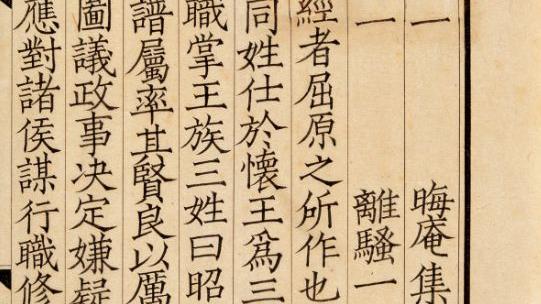 一 晦庵集
一 離騷一
經者屈原之所作也
同姓仕於懷王爲三
職掌王族三姓曰昭
譜屬率其賢良以厲
圖議政事决定嫌疑
應對諸侯謀行職修